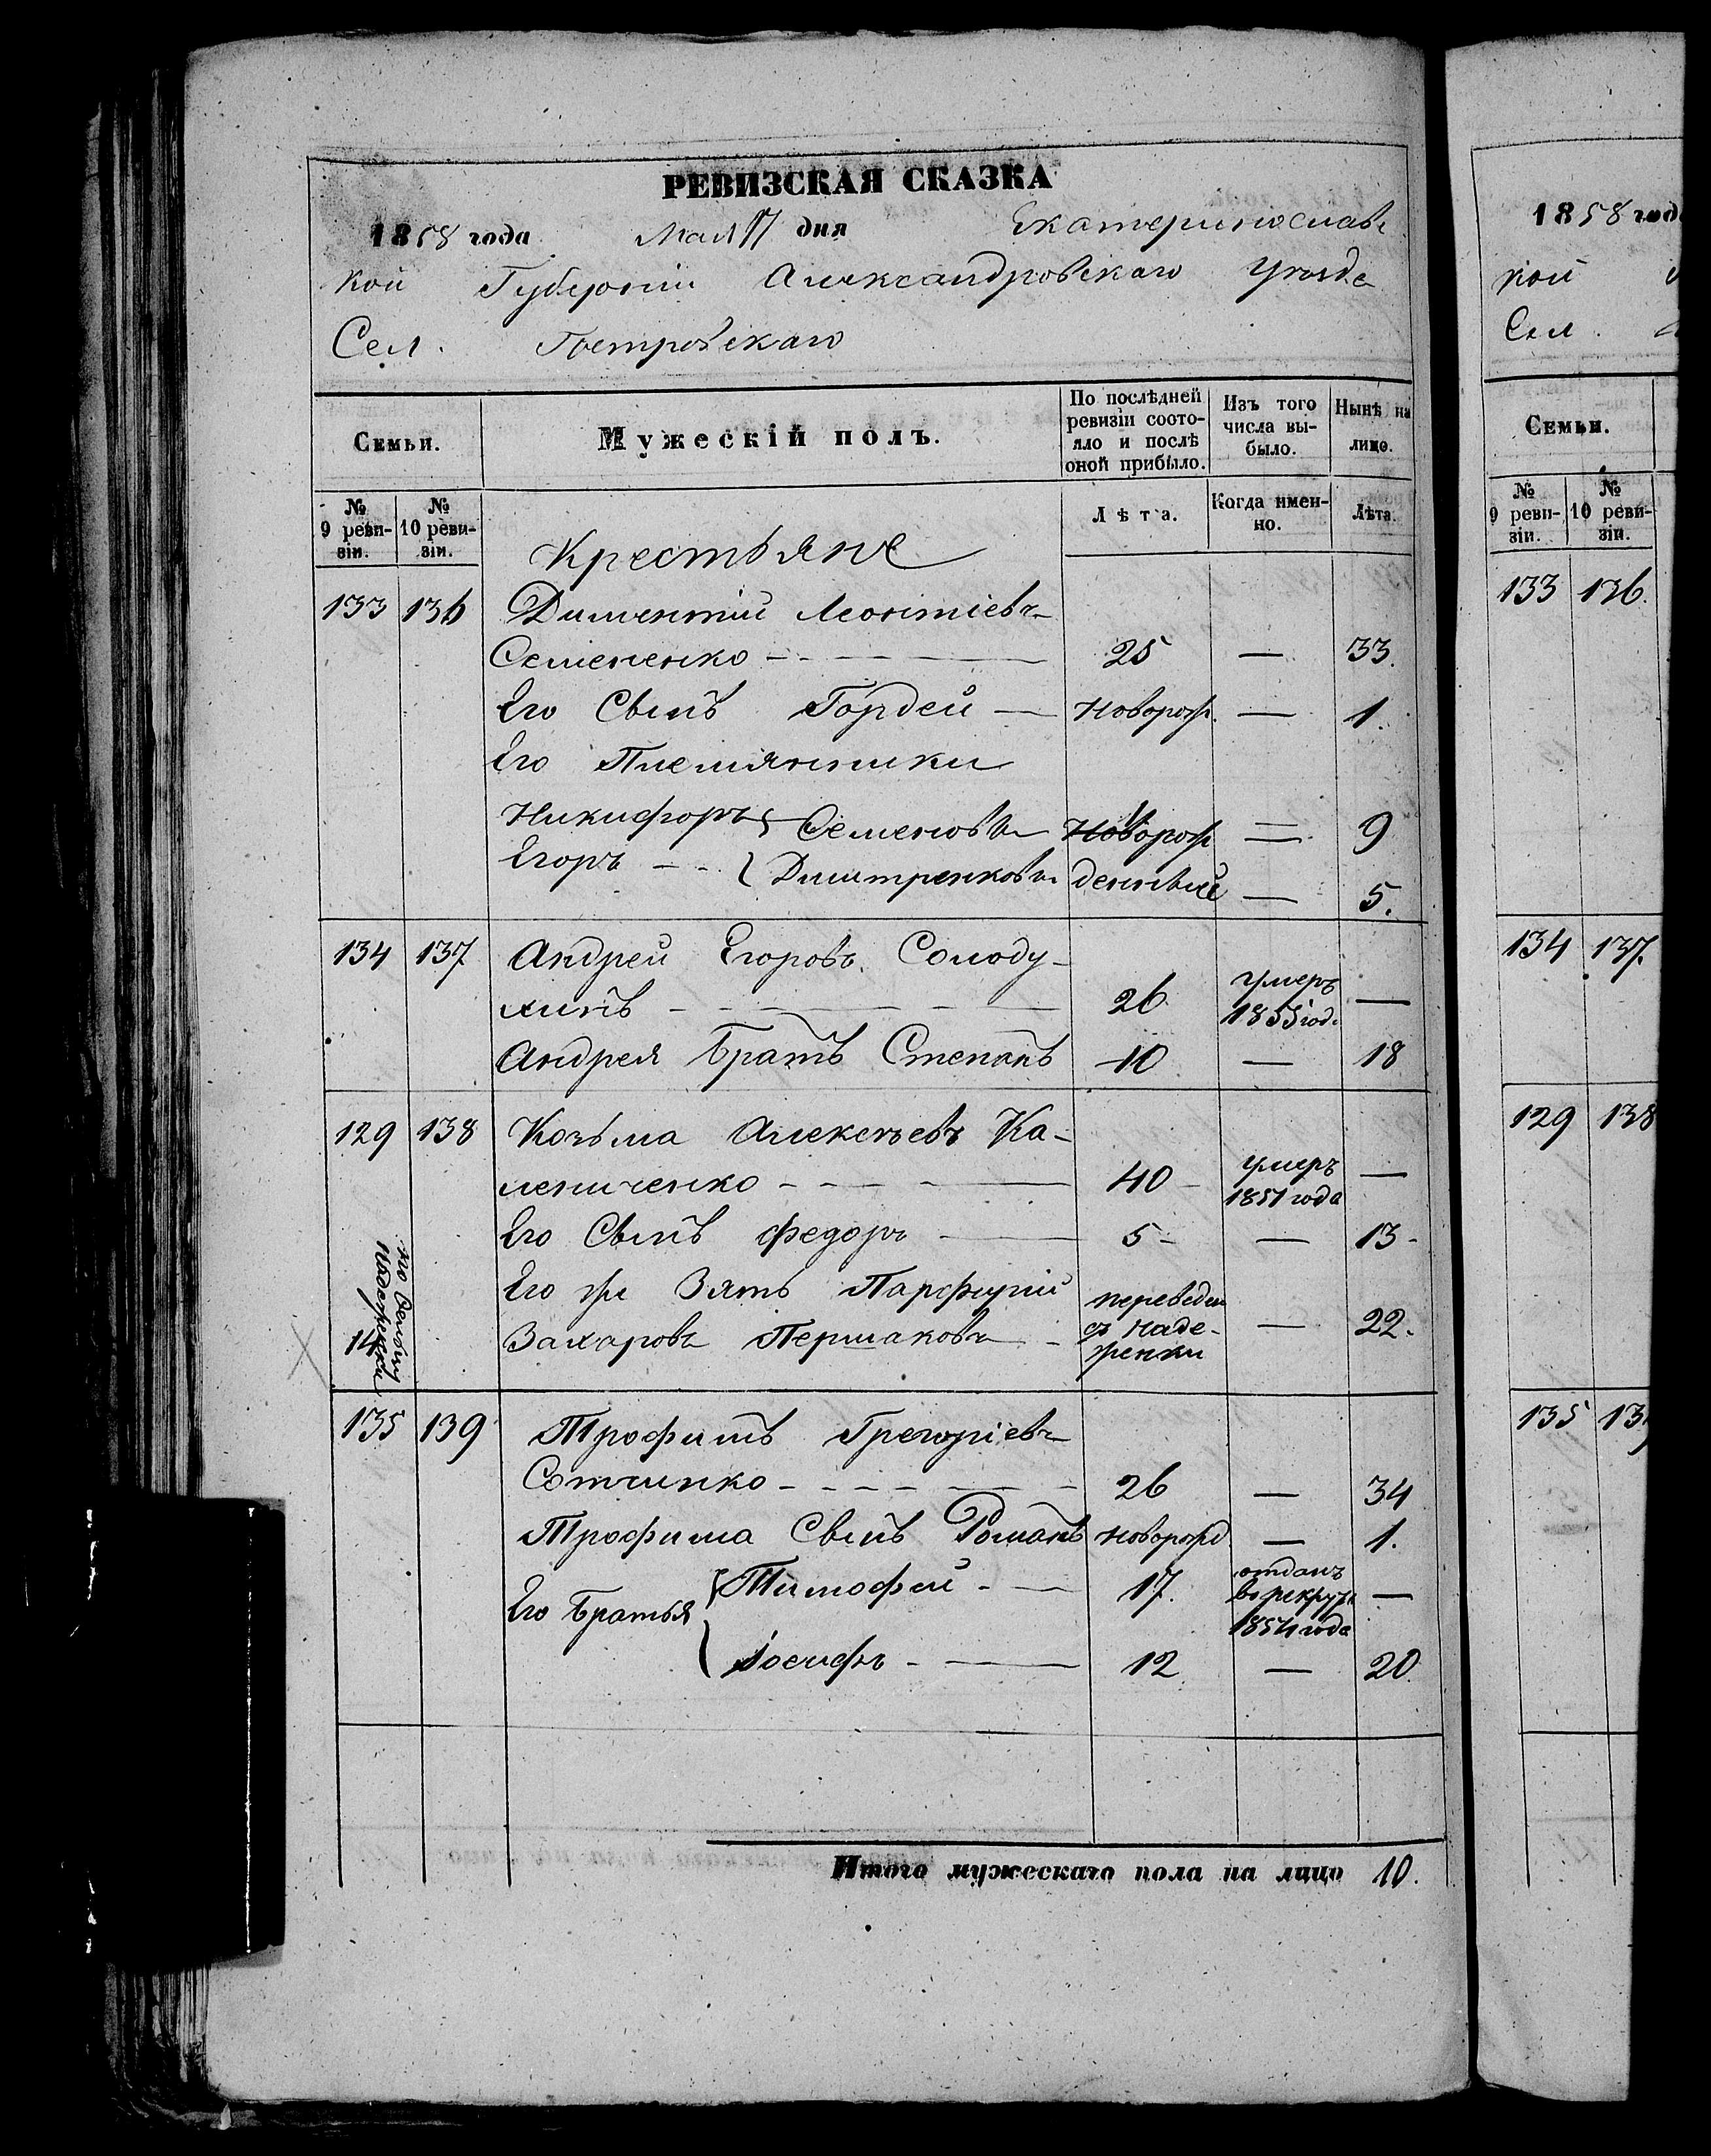 РЕВИЗСКАЯ СКАЗКА
1858 года Мая 17 дня Екатеринославс
кой Губерніи Александровскаго Уѣзда
Сел. Петровскаго
Семьи.
Мужескій полъ.
По послѣдней ревизіи состояло и послѣ оной прибыло.
Изъ того числа выбыло.
Нынѣ на лицо.
№ 9 ревизіи.
№ 10 ревизіи.
Лѣта.
Когда именно.
Лѣта.
Крестьяне
133 136 Диментій Леонтіевъ
Семененко 25 — 33.
Его Сынъ Гордей — Новорож. — 1.
Его Племянники
Никифоръ Семеновы Новорож — 9
Егоръ Дмитренковы денные — 5.
134 137 Андрей Егоровъ Солоду-
хинъ 26 умеръ 1855 год. —
Андрея Братъ Степанъ 10 — 18
129 138 Козьма Алексѣевъ Ка-
лениченко 40 умеръ 1851 года —
Его Сынъ Федоръ 5 — 13
Его же Зять Парфирій переведен
Захаровъ Першаковъ съ Наде- — 22.
женки
14
по Селѣнію Надеженки
135 139 Трофимъ Григоріевъ
Сотченко 26 — 34
Трофима Сынъ Романъ новорожд — 1.
Его Братья Тимофей 17. отданъ въ рекруты 1854 года —
Іосифъ 12 — 20.
Итого мужескаго пола на лицо 10.
1858 года
кой
Сел.
Семьи.
№ 9 ревизіи.
№ 10 ревизіи.
133 136.
134 137.
129 138
135 13